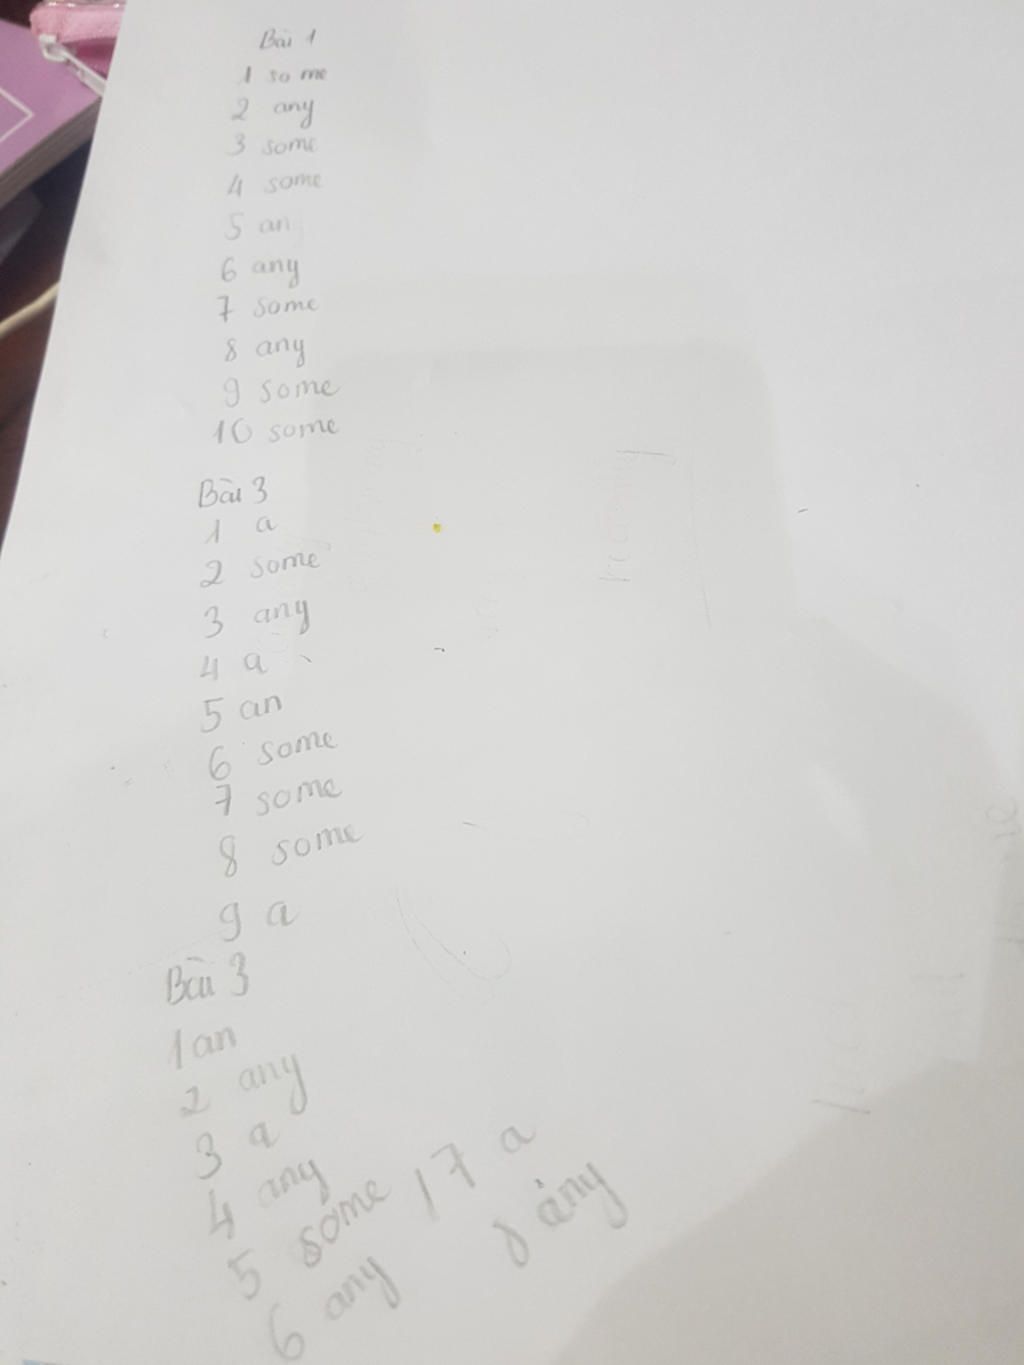 Bài 1
1 some
2 any
3 some
4 some
5 an
6 any
7 some
8 any
9 some
10 some
Bài 3
1 a
2 some
3 any
4 a
5 an
6 some
7 some
8 some
9 a
Bài 3
1 an
2 any
3 a
4 any
5 some / 7 a
6 any 8 any